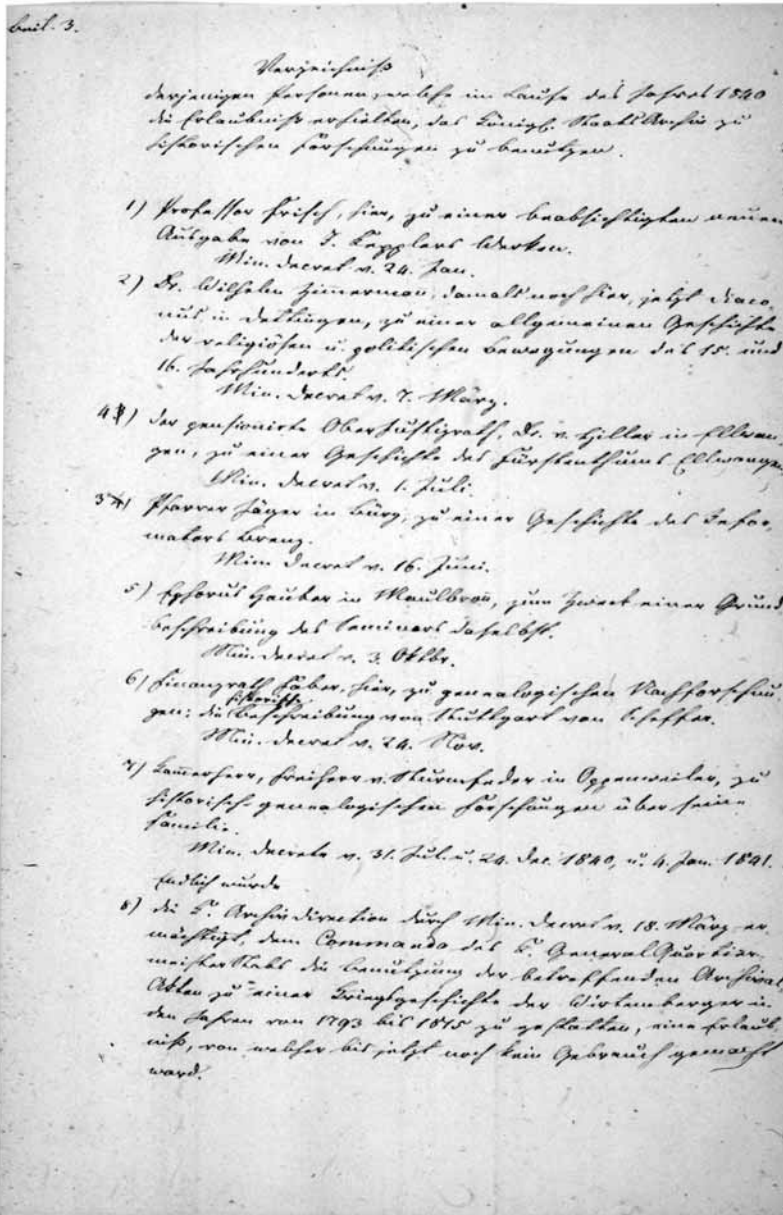 Beil. 3.
Verzeichniß
derjenigen Personen, welche im Laufe des Jahres 1840
die Erlaubniß erhielten, das Königl. Staats Archiv zu
historischen Forschungen zu benutzen.
1) Professor Frisch, hier, zu einer beabsichtigten neuen
Ausgabe von J. Kepplers Werken.
Min. Decret v. 24. Jan.
2) Dr. Wilhelm Zimmermann, damals noch hier, jetzt Diaco,
nus in Dettingen, zu einer allgemeinen Geschichte
der religiösen u. politischen Bewegungen des 15. und
16. Jahrhunderts.
Min. Decret v. 7. März.
4) Der pensionirte Oberjustizrath, Dr. v. Hiller in Ellwan,
gen, zu einer Geschichte des Fürstenthums Ellwangen
Min. Decret v. 1. Juli.
3) Pfarrer Jäger in Bürg, zu einer Geschichte des Refor,
mators Brenz.
Min. Decret v. 16. Juni.
5) Ephorus Hauber in Maulbronn, zum Zweck einer Grund
beschreibung des Seminars daselbst.
Min. Decret v. 3. Oktbr.
6) Finanzrath Faber, hier, zu genealogischen Nachforschun
gen; die historische Beschreibung von Stuttgart von Scheffer.
Min. Decret v. 24. Nov.
7) Kammerherr, Freiherr v. Sturmfeder in Oppenweiler, zu
historisch-genealogischen Forschungen über seine
Familie.
Min. Decrete v. 31. Jul. u. 24. Dec. 1840, u. 4. Jan. 1841.
Endlich wurde
8) die K. Archivdirection durch Min. Decret v. 18. März er
mächtigt, dem Commando des K. General Quartier
meister Stabs die Benutzung der betreffenden Archival,
Akten zu einer Kriegsgeschichte der Wirtemberger in
den Jahren von 1793 bis 1815 zu gestatten, eine Erlaub,
niß, von welcher bis jetzt noch kein Gebrauch gemacht
ward.